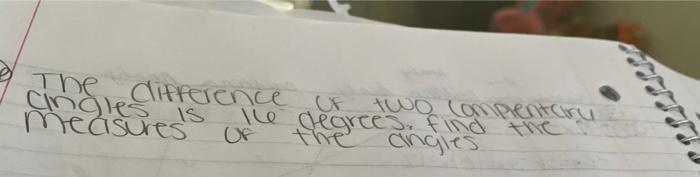 The difference of two compentary
angles is 16 degrees. find the
measures of the angles